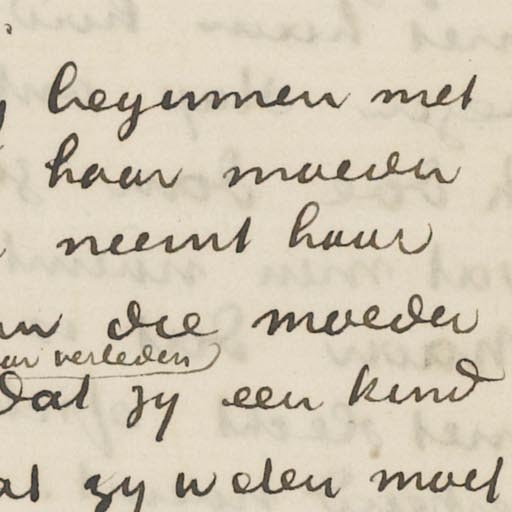 beginnen met
haar moeder
neemt haar
die moeder
verleden
dat zy een kind
zy weten moet